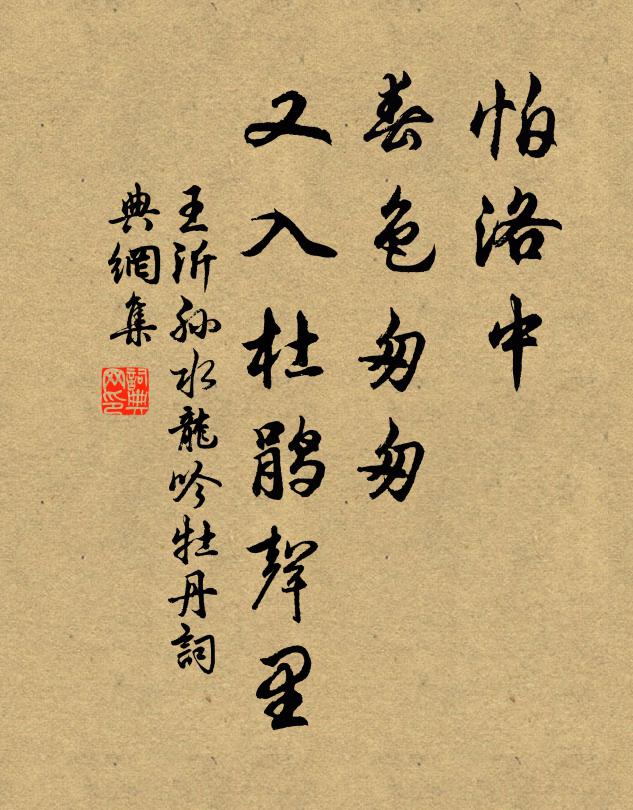 怕洛中
春色匆匆
又入杜鹃聲里
王沂孙水龍吟牡丹詞
典網集
詞典
网印